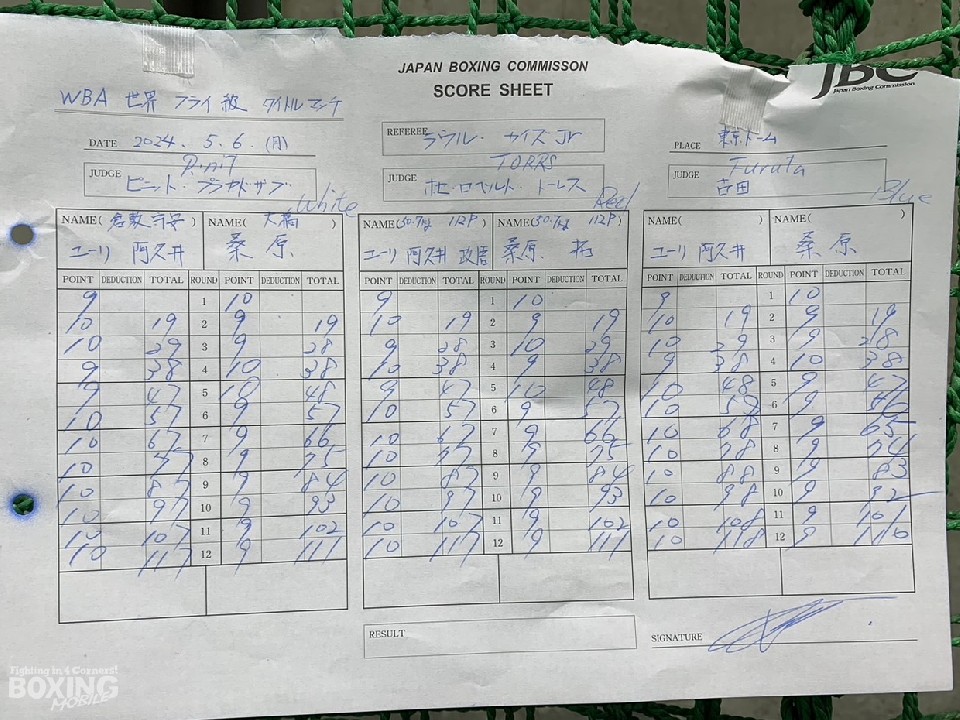 JAPAN BOXING COMMISSON
SCORE SHEET
JBC
Japan Boxing Commission
WBA 世界 フライ級 タイトルマッチ
DATE 2024. 5. 6. (月)
REFEREE ラウル・カイズJr
PLACE 東京ドーム
JUDGE ピニット・プラヤドサブ
White
JUDGE TORRS
ホセ・ロベルト・トーレス
Red
JUDGE Furuta
古田
Blue
NAME( 倉敷守安 ) NAME( 大橋 )
ユーリ 阿久井 桑原
NAME(50.7kg 112P) NAME(50.7kg 112P)
ユーリ 阿久井 政悟 桑原 拓
NAME( ) NAME( )
ユーリ 阿久井 桑原
POINT DEDUCTION TOTAL ROUND POINT DEDUCTION TOTAL POINT DEDUCTION TOTAL ROUND POINT DEDUCTION TOTAL POINT DEDUCTION TOTAL ROUND POINT DEDUCTION TOTAL
9 1 10 9 1 10 9 1 10
10 19 2 9 19 10 19 2 9 19 10 19 2 9 19
10 29 3 9 28 9 28 3 10 29 10 29 3 9 28
9 38 4 10 38 10 38 4 9 38 9 38 4 10 38
9 47 5 10 48 9 47 5 10 48 10 48 5 9 47
10 57 6 9 57 10 57 6 9 57 10 58 6 9 56
10 67 7 9 66 10 67 7 9 66 10 68 7 9 65
10 77 8 9 75 10 77 8 9 75 10 78 8 9 74
10 87 9 9 84 10 87 9 9 84 10 88 9 9 83
10 97 10 9 93 10 97 10 9 93 10 98 10 9 92
10 107 11 9 102 10 107 11 9 102 10 108 11 9 101
10 117 12 9 111 10 117 12 9 111 10 118 12 9 110
RESULT
SIGNATURE
Fighting in 4 Corners!
BOXING
MOBILE